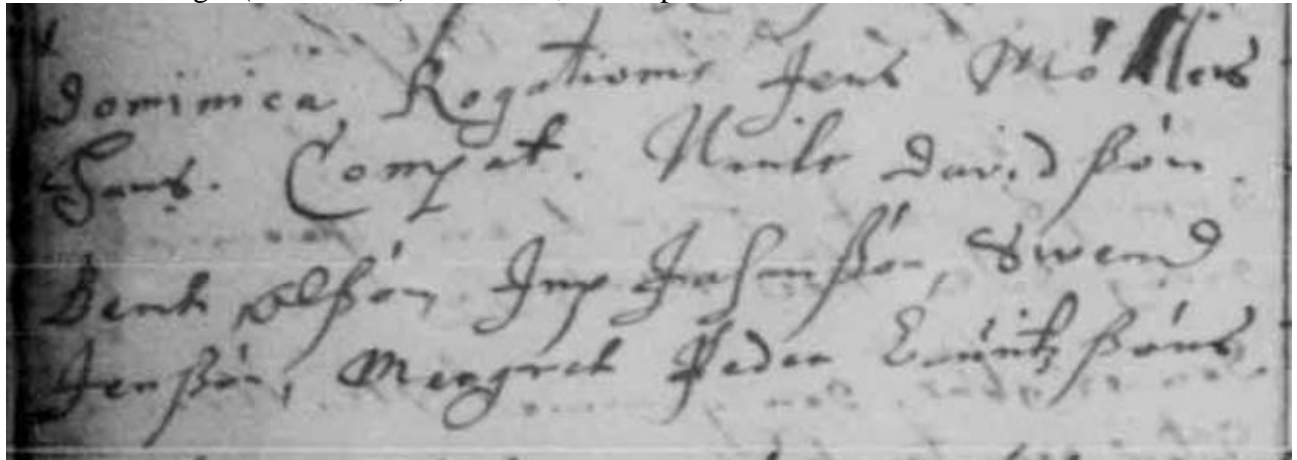 Dominica Rogationis Jens Möllers
Hans. Compat. Niels Davidssön.
Bent Olssön, Jep Jahnssön, Swend
Jenssön, Mergret Peder Lauritzsöns.